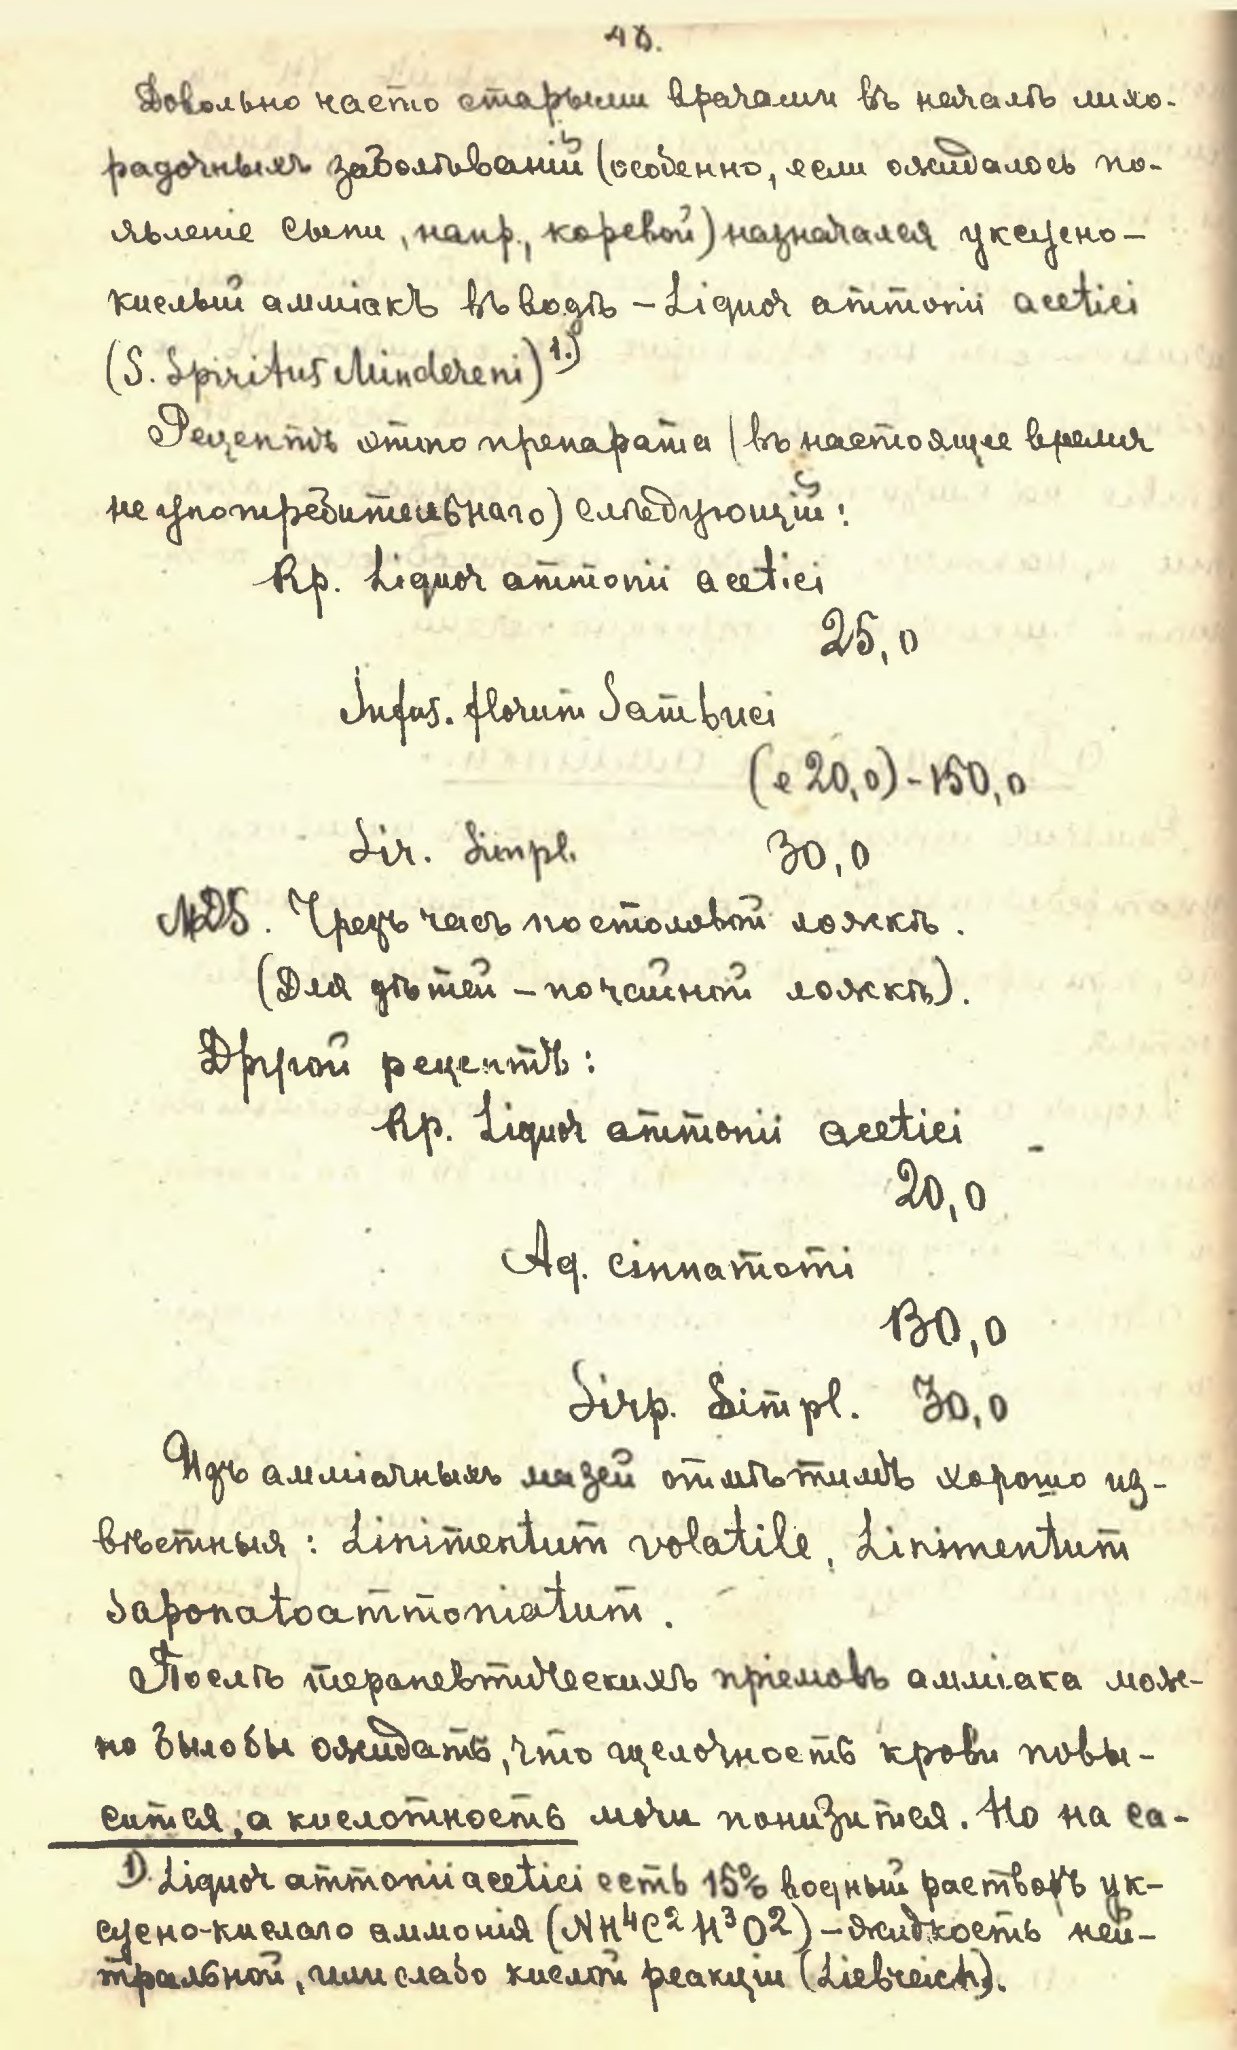 48.
Довольно часто старыми врачами въ началѣ лихо-
радочныхъ заболѣваній (особенно, если ожидалось по-
явленіе сыпи, напр., коревой) назначался уксусно-
кислый амміакъ въ водѣ – Liquor ammonii acetici
(S. Spiritus Mindereni) 1.)
Рецептъ этого препарата (въ настоящее время
не употребительнаго) слѣдующій:
Rp. Liquor ammonii acetici
25,0
Infus. florum Sambuci
(e 20,0) - 150,0
Sir. Simpl. 30,0
MDS. Чрезъ часъ по столовой ложкѣ.
(Для дѣтей – по чайной ложкѣ).
Другой рецептъ:
Rp. Liquor ammonii acetici
20,0
Aq. cinnamomi
130,0
Sirp. Simpl. 30,0
Изъ амміачныхъ мазей отмѣтимъ хорошо из-
вѣстныя: Linimentum volatile, Linimentum
saponatoammoniatum.
Послѣ терапевтическихъ пріемовъ амміака мож-
но было бы ожидать, что щелочность крови повы-
сится, а кислотность мочи понизится. Но на са-
1) Liquor ammonii acetici есть 15% водный растворъ ук-
сусно-кислаго аммонія (NH⁴C²H³O²) – жидкость ней-
тральной, или слабо кислой реакціи (Liebreich).